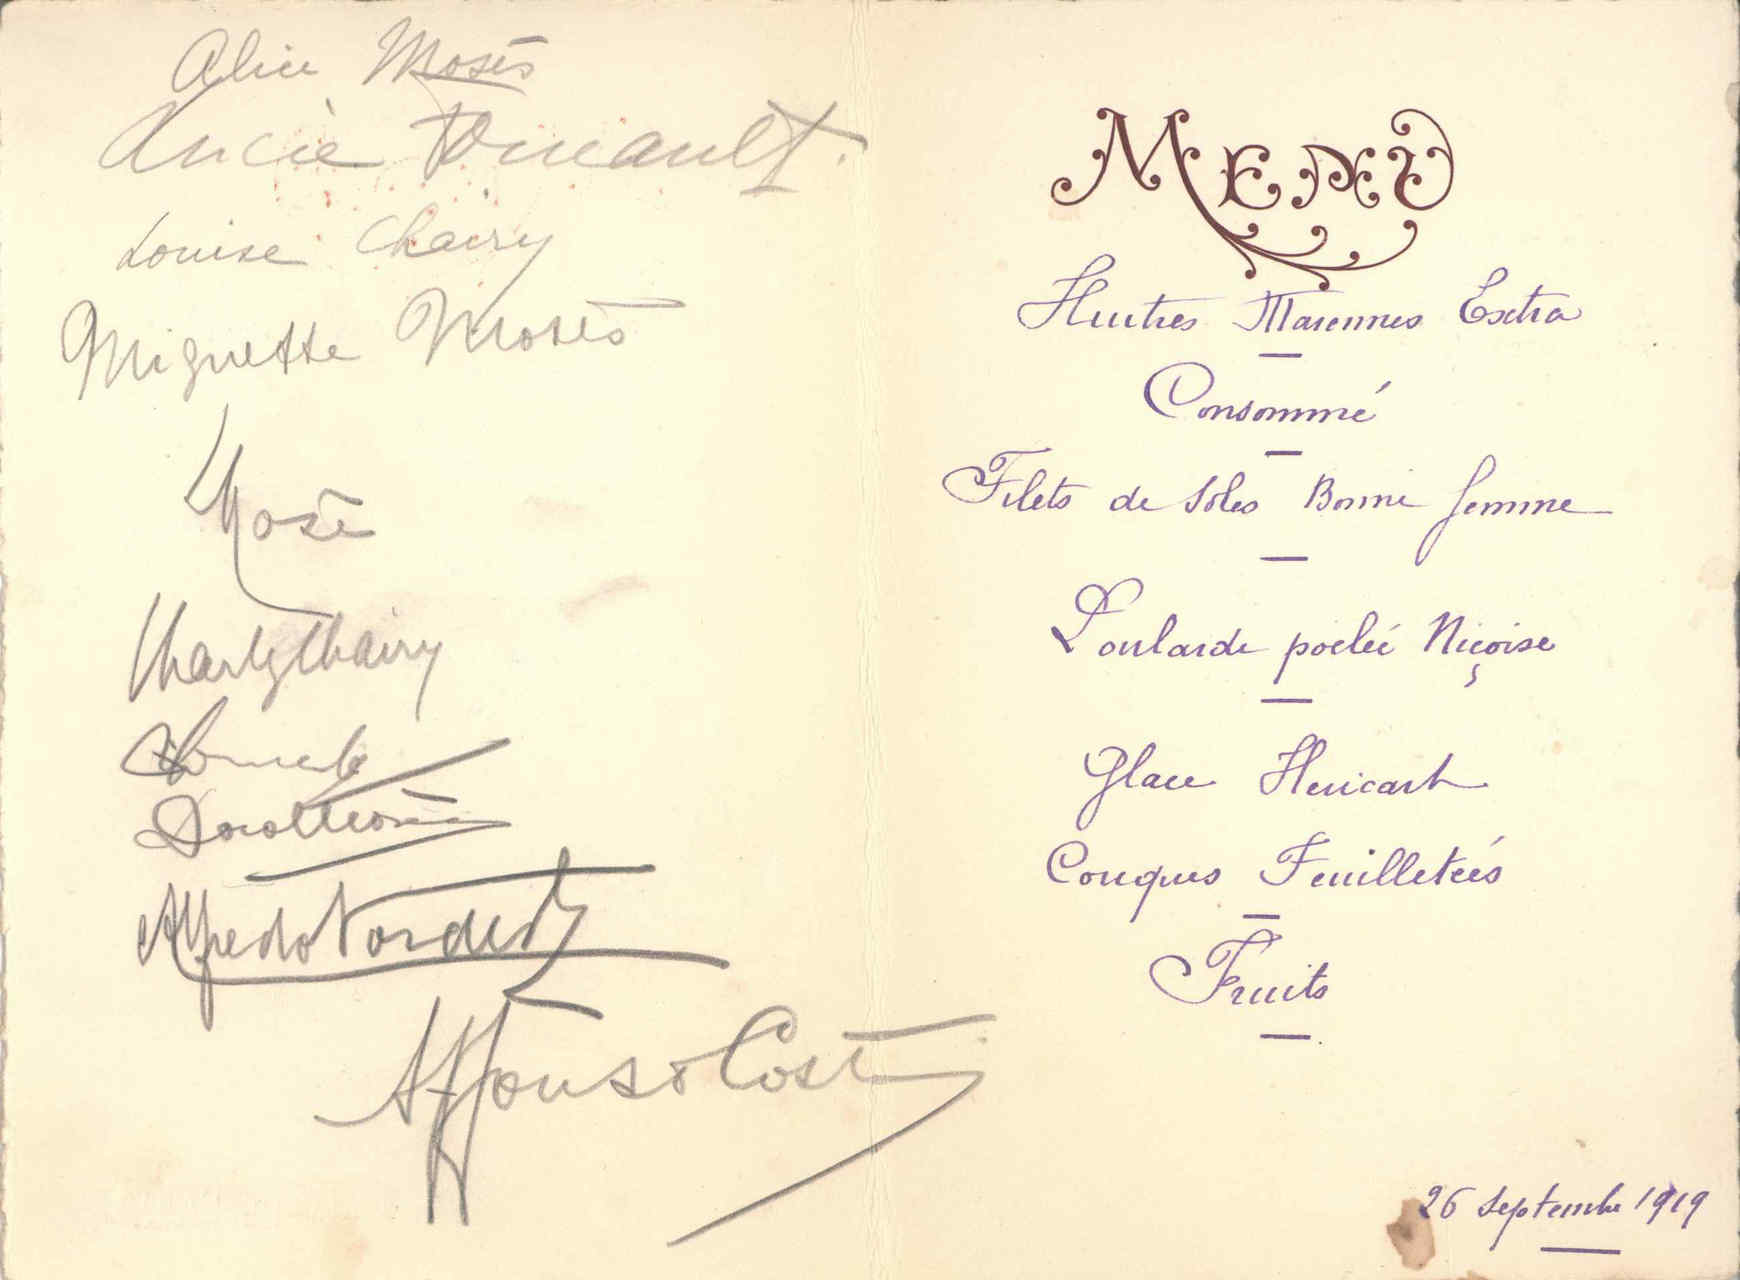 Alice Mosès
Lucie
Louise Chairy
Miguette Mosès
Mosè
Charly Chairy
Alfredo
Affonso Costa
MENU
Huitres Marennes Extra
Consommé
Filets de Soles Bonne femme
Poularde poêlée Niçoise
Glace Hericart
Couques Feuilleteés
Fruits
26 Septembre 1919